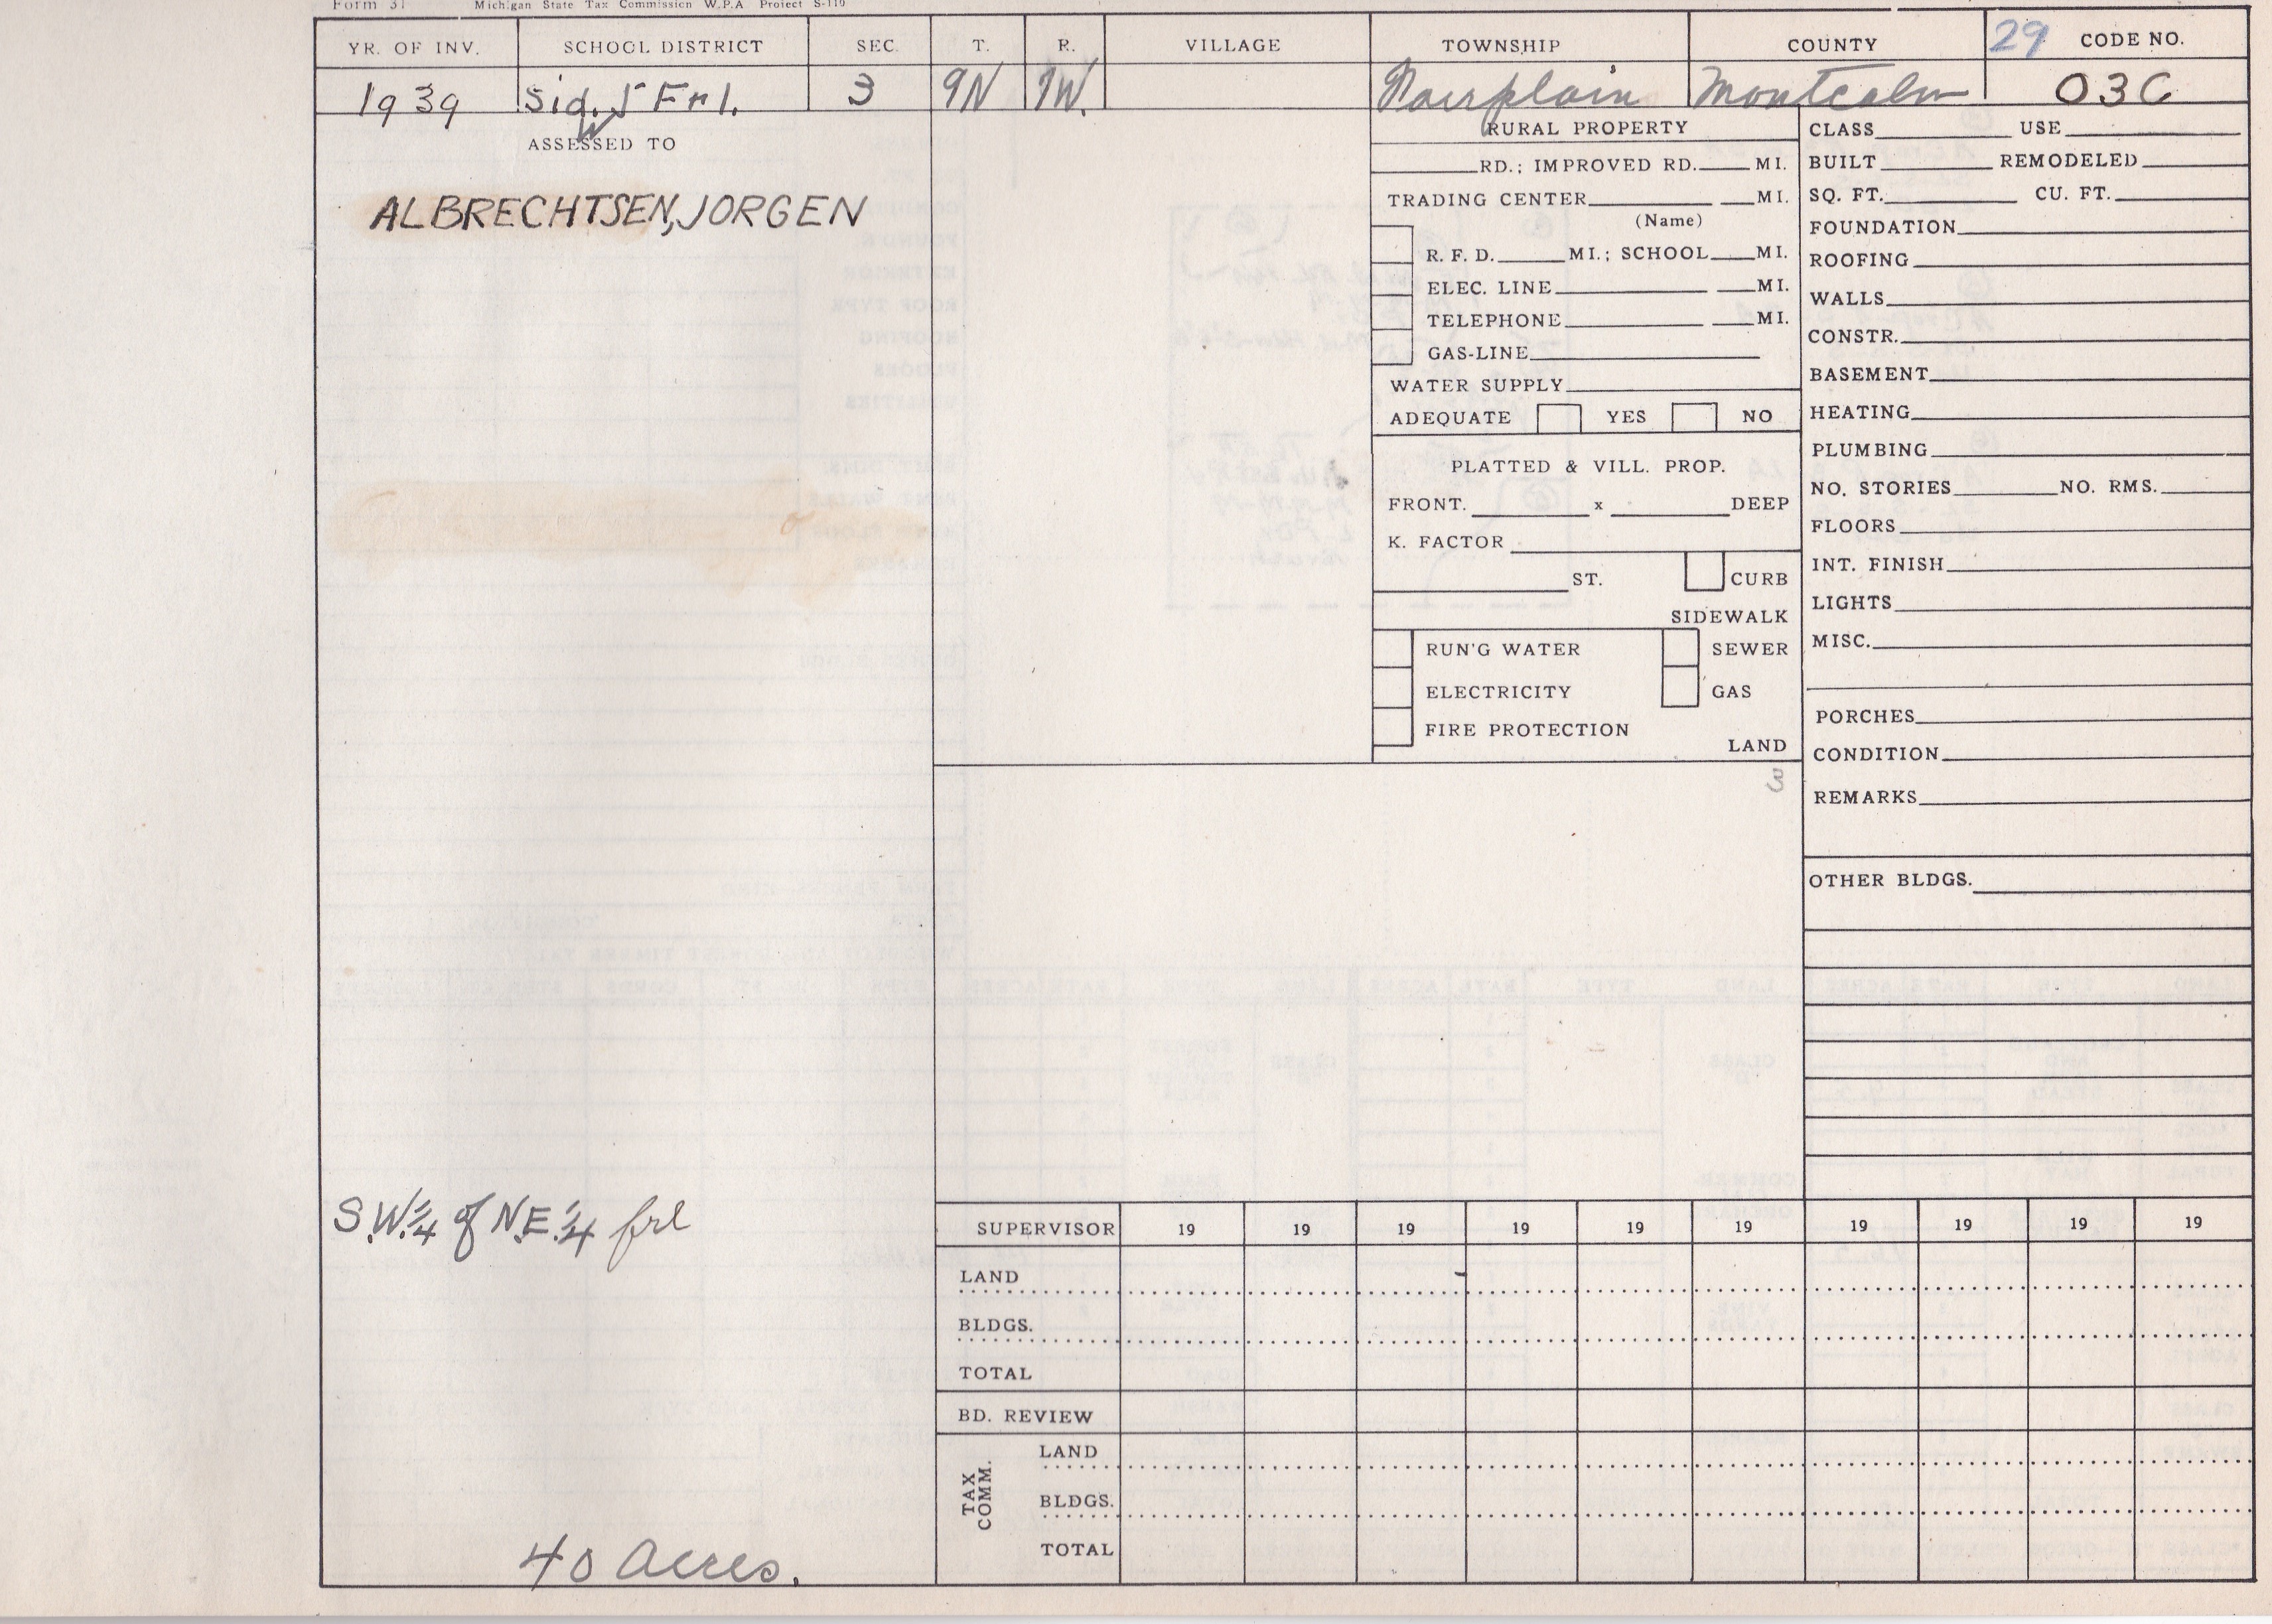 Form 31 Michigan State Tax Commission W.P.A Project S-110
YR. OF INV. SCHOOL DISTRICT SEC. T. R. VILLAGE TOWNSHIP COUNTY 29 CODE NO.
1939 Sid. 5 Frl. 3 9N Fairplain Montcalm 03C
ASSESSED TO
ALBRECHTSEN, JORGEN
S.W.¼ of N.E.¼ frl
40 Acres.
RURAL PROPERTY
RD.; IMPROVED RD. MI.
TRADING CENTER MI.
(Name)
R. F. D. MI.; SCHOOL MI.
ELEC. LINE MI.
TELEPHONE MI.
GAS-LINE
WATER SUPPLY
ADEQUATE YES NO
PLATTED & VILL. PROP.
FRONT. x DEEP
K. FACTOR
ST. CURB
SIDEWALK
RUN'G WATER SEWER
ELECTRICITY GAS
FIRE PROTECTION
LAND
3
CLASS USE
BUILT REMODELED
SQ. FT. CU. FT.
FOUNDATION
ROOFING
WALLS
CONSTR.
BASEMENT
HEATING
PLUMBING
NO. STORIES NO. RMS.
FLOORS
INT. FINISH
LIGHTS
MISC.
PORCHES
CONDITION
REMARKS
OTHER BLDGS.
SUPERVISOR 19 19 19 19 19 19 19 19 19 19
LAND
BLDGS.
TOTAL
BD. REVIEW
TAX COMM.
LAND
BLDGS.
TOTAL